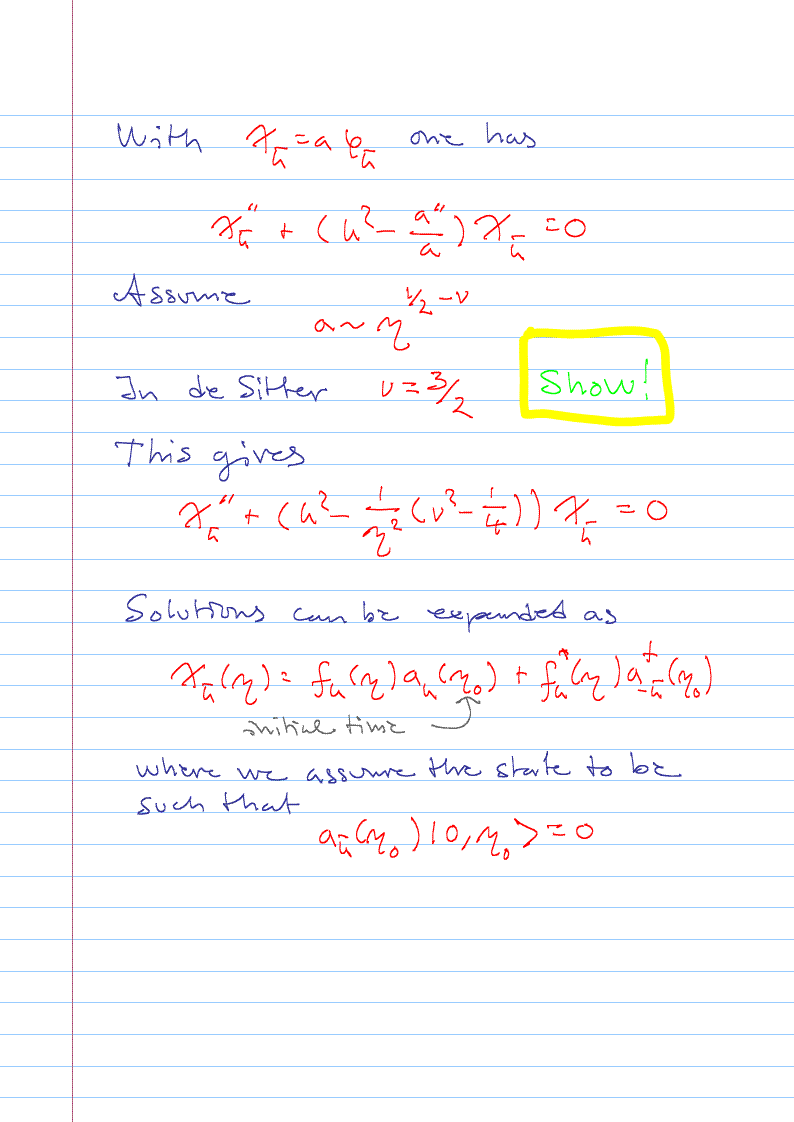 With χ_k̄ = a φ_k̄ one has
χ_k̄'' + (k² − a''/a) χ_k̄ = 0
Assume
a ~ η^(1/2 − ν)
In de Sitter ν = 3/2 Show!
This gives
χ_k̄'' + (k² − 1/η² (ν² − 1/4)) χ_k̄ = 0
Solutions can be expanded as
χ_k̄(η) = f_k(η) a_k(η₀) + f_k*(η) a†_−k̄(η₀)
initial time
where we assume the state to be
such that
a_k̄(η₀) |0, η₀> = 0